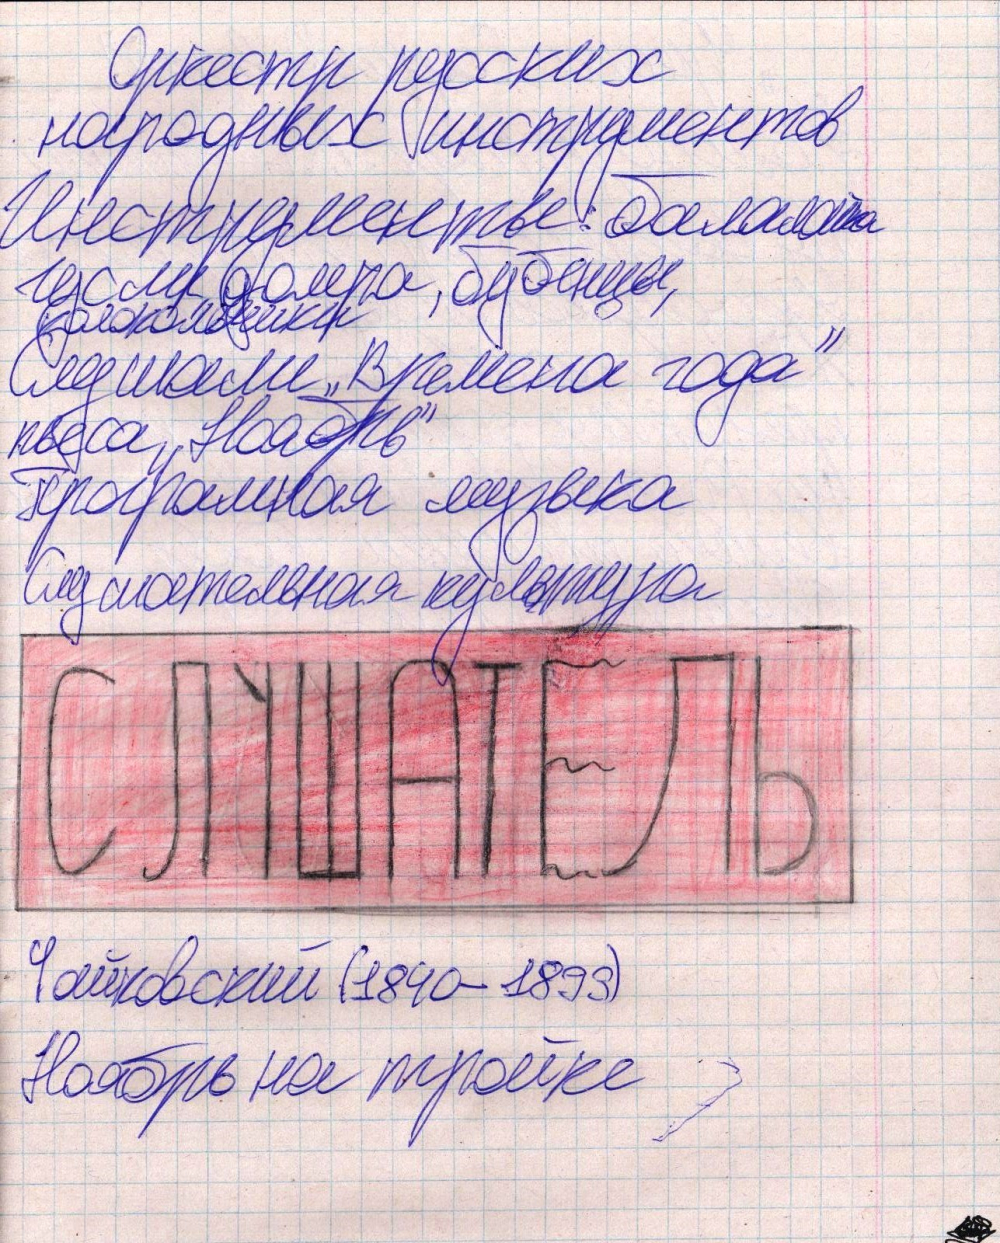 Оркестр русских
народных инструментов
Инструменты: балалайка
гусли, домра, бубенцы,
колокольчики
Слушали „Времена года”
пьеса „Ноябрь”
Програмная музыка
Слушательная культура
СЛУШАТЕЛЬ
Чайковский (1840-1893)
Ноябрь на тройке